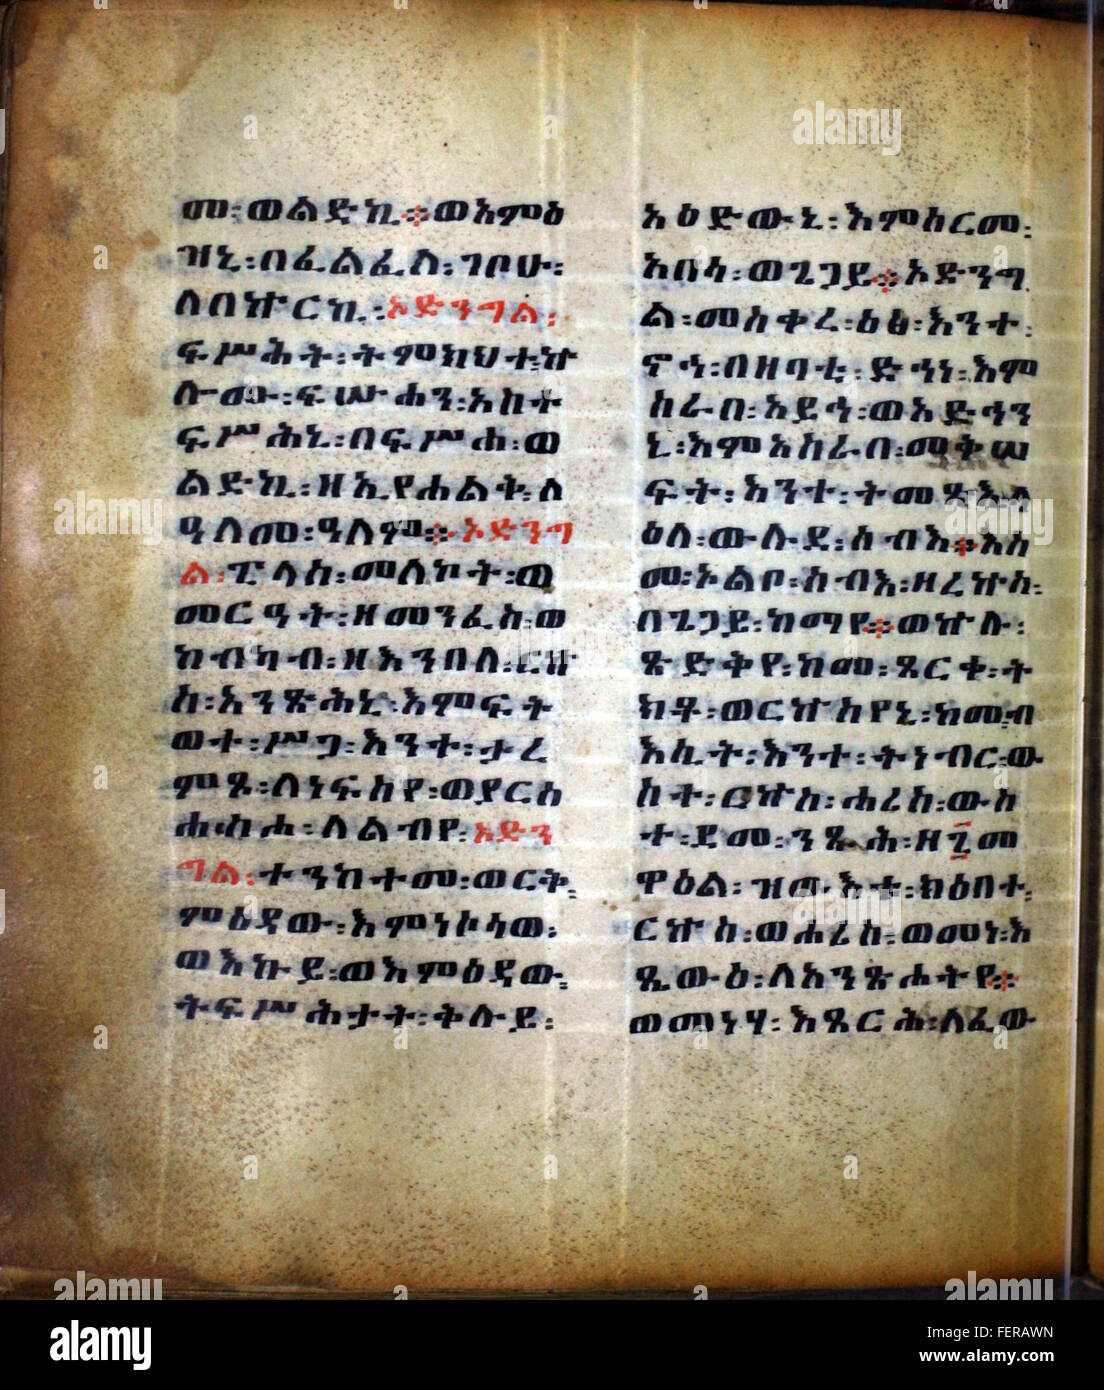 መ፡ወልድኪ፨ወእምዕ
ዝኒ፡በፈልፈስ፡ገቦሁ፡
ለበኵርኪ፡ኦድንግል፡
ፍሥሕት፡ትምክህተ፡ኵ
ሉ፡ሙ፡ፍሡሐን፡አከተ
ፍሥሕኒ፡በፍሥሐ፡ወ
ልድኪ፡ዘኢየሐልቅ፡ለ
ዓለመ፡ዓለም፨ኦድንግ
ል፡ፒላስ፡መለኮት፡ወ
መርዓት፡ዘመንፈስ፡ወ
ከብካብ፡ዘእንበለ፡ርኵ
ስ፡አንጽሕኒ፡እምፍት
ወተ፡ሥጋ፡እንተ፡ታረ
ምጾ፡ለነፍስየ፡ወያርስ
ሐስሐ፡ለልብየ፡ኦድን
ግል፡ተንከተመ፡ወርቅ፡
ምዕዳው፡እምነኮላወ፡
ወእኩይ፡ወእምዕዳው፡
ትፍሥሕታት፡ቅሉይ፡
አዕድውኒ፡እምስርመ፡
አበሳ፡ወጌጋይ፨ኦድንግ
ል፡መስቀረ፡ዕፅ፡እንተ፡
ኖኀ፡በዘባቲ፡ድኅነ፡እም
ከራበ፡አይኅ፡ወአድኅን
ኒ፡እምአከራበ፡መቅሠ
ፍት፡እንተ፡ትመጽእ፡ላ
ዕለ፡ውሉደ፡ሰብእ፨እስ
መ፡ኦልቦ፡ሰብእ፡ዘረኵሰ፡
በጌጋይ፡ከማየ፨ወኵሉ፡
ጽድቅየ፡ከመ፡ጸርቀ፡ት
ክቶ፡ወርኵስየኒ፡ከመ፡ብ
እሲት፡እንተ፡ትነብር፡ው
ስተ፡ርኵስ፡ሐረስ፡ውስ
ተ፡ደመ፡ንጹሕ፡ዘ፯መ
ዋዕል፡ዝጡእቱ፡ክዕበተ፡
ርኵስ፡ወሐረስ፡ወመነ፡እ
ጼውዕ፡ለአንጽሖትየ፨
ወመነሂ፡እጼርሕ፡ለፈው